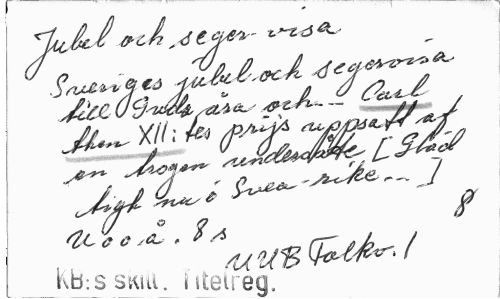 Jubel och seger-visa
Sveriges jubel och segervisa
till Guds ära och -- Carl
then XII:tes prijs uppsatt af
en trogen undersåte [Gläd
tigh nu ó Svea-rike -- ]
U o o å. 8 s
8
UUB Folkv. 1
KB:s skill. Titelreg.